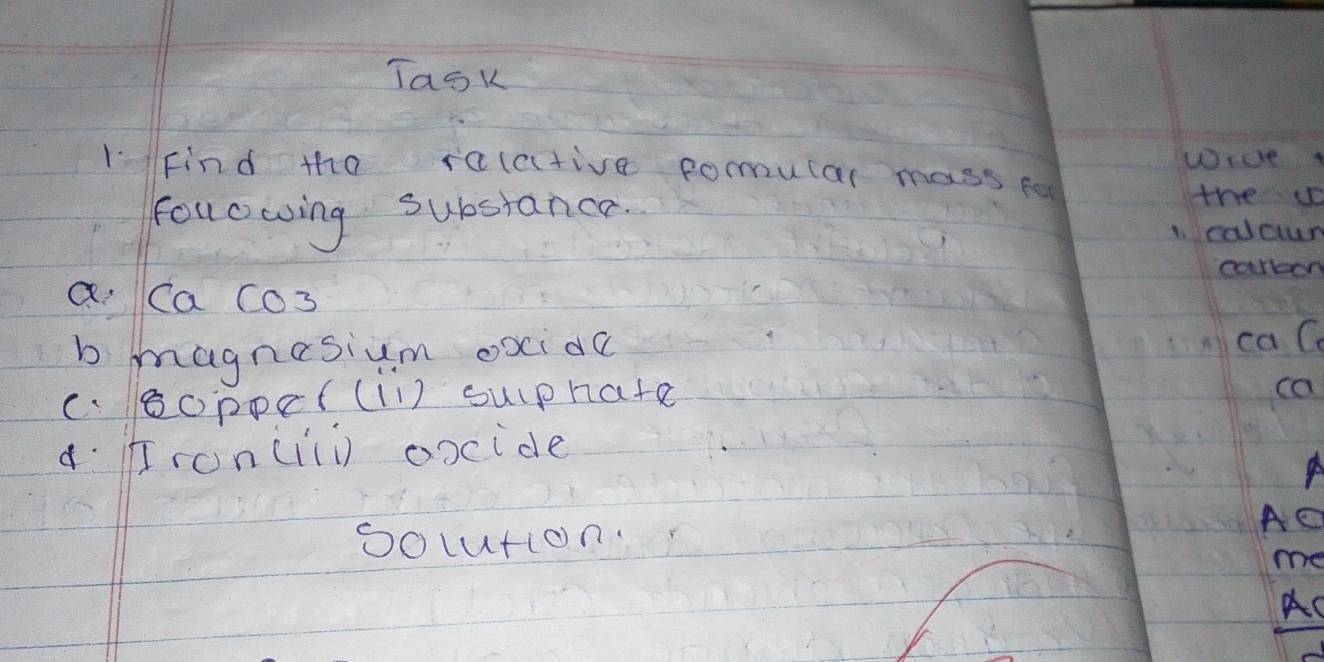 Task
1. Find the ralative fomular mass for
following substance.
a. Ca CO3
b magnesium oxide
c. Copper (ii) sulphate
d. Iron (iii) oxide
Solution.
the
1.
carbon
ca
ca
A